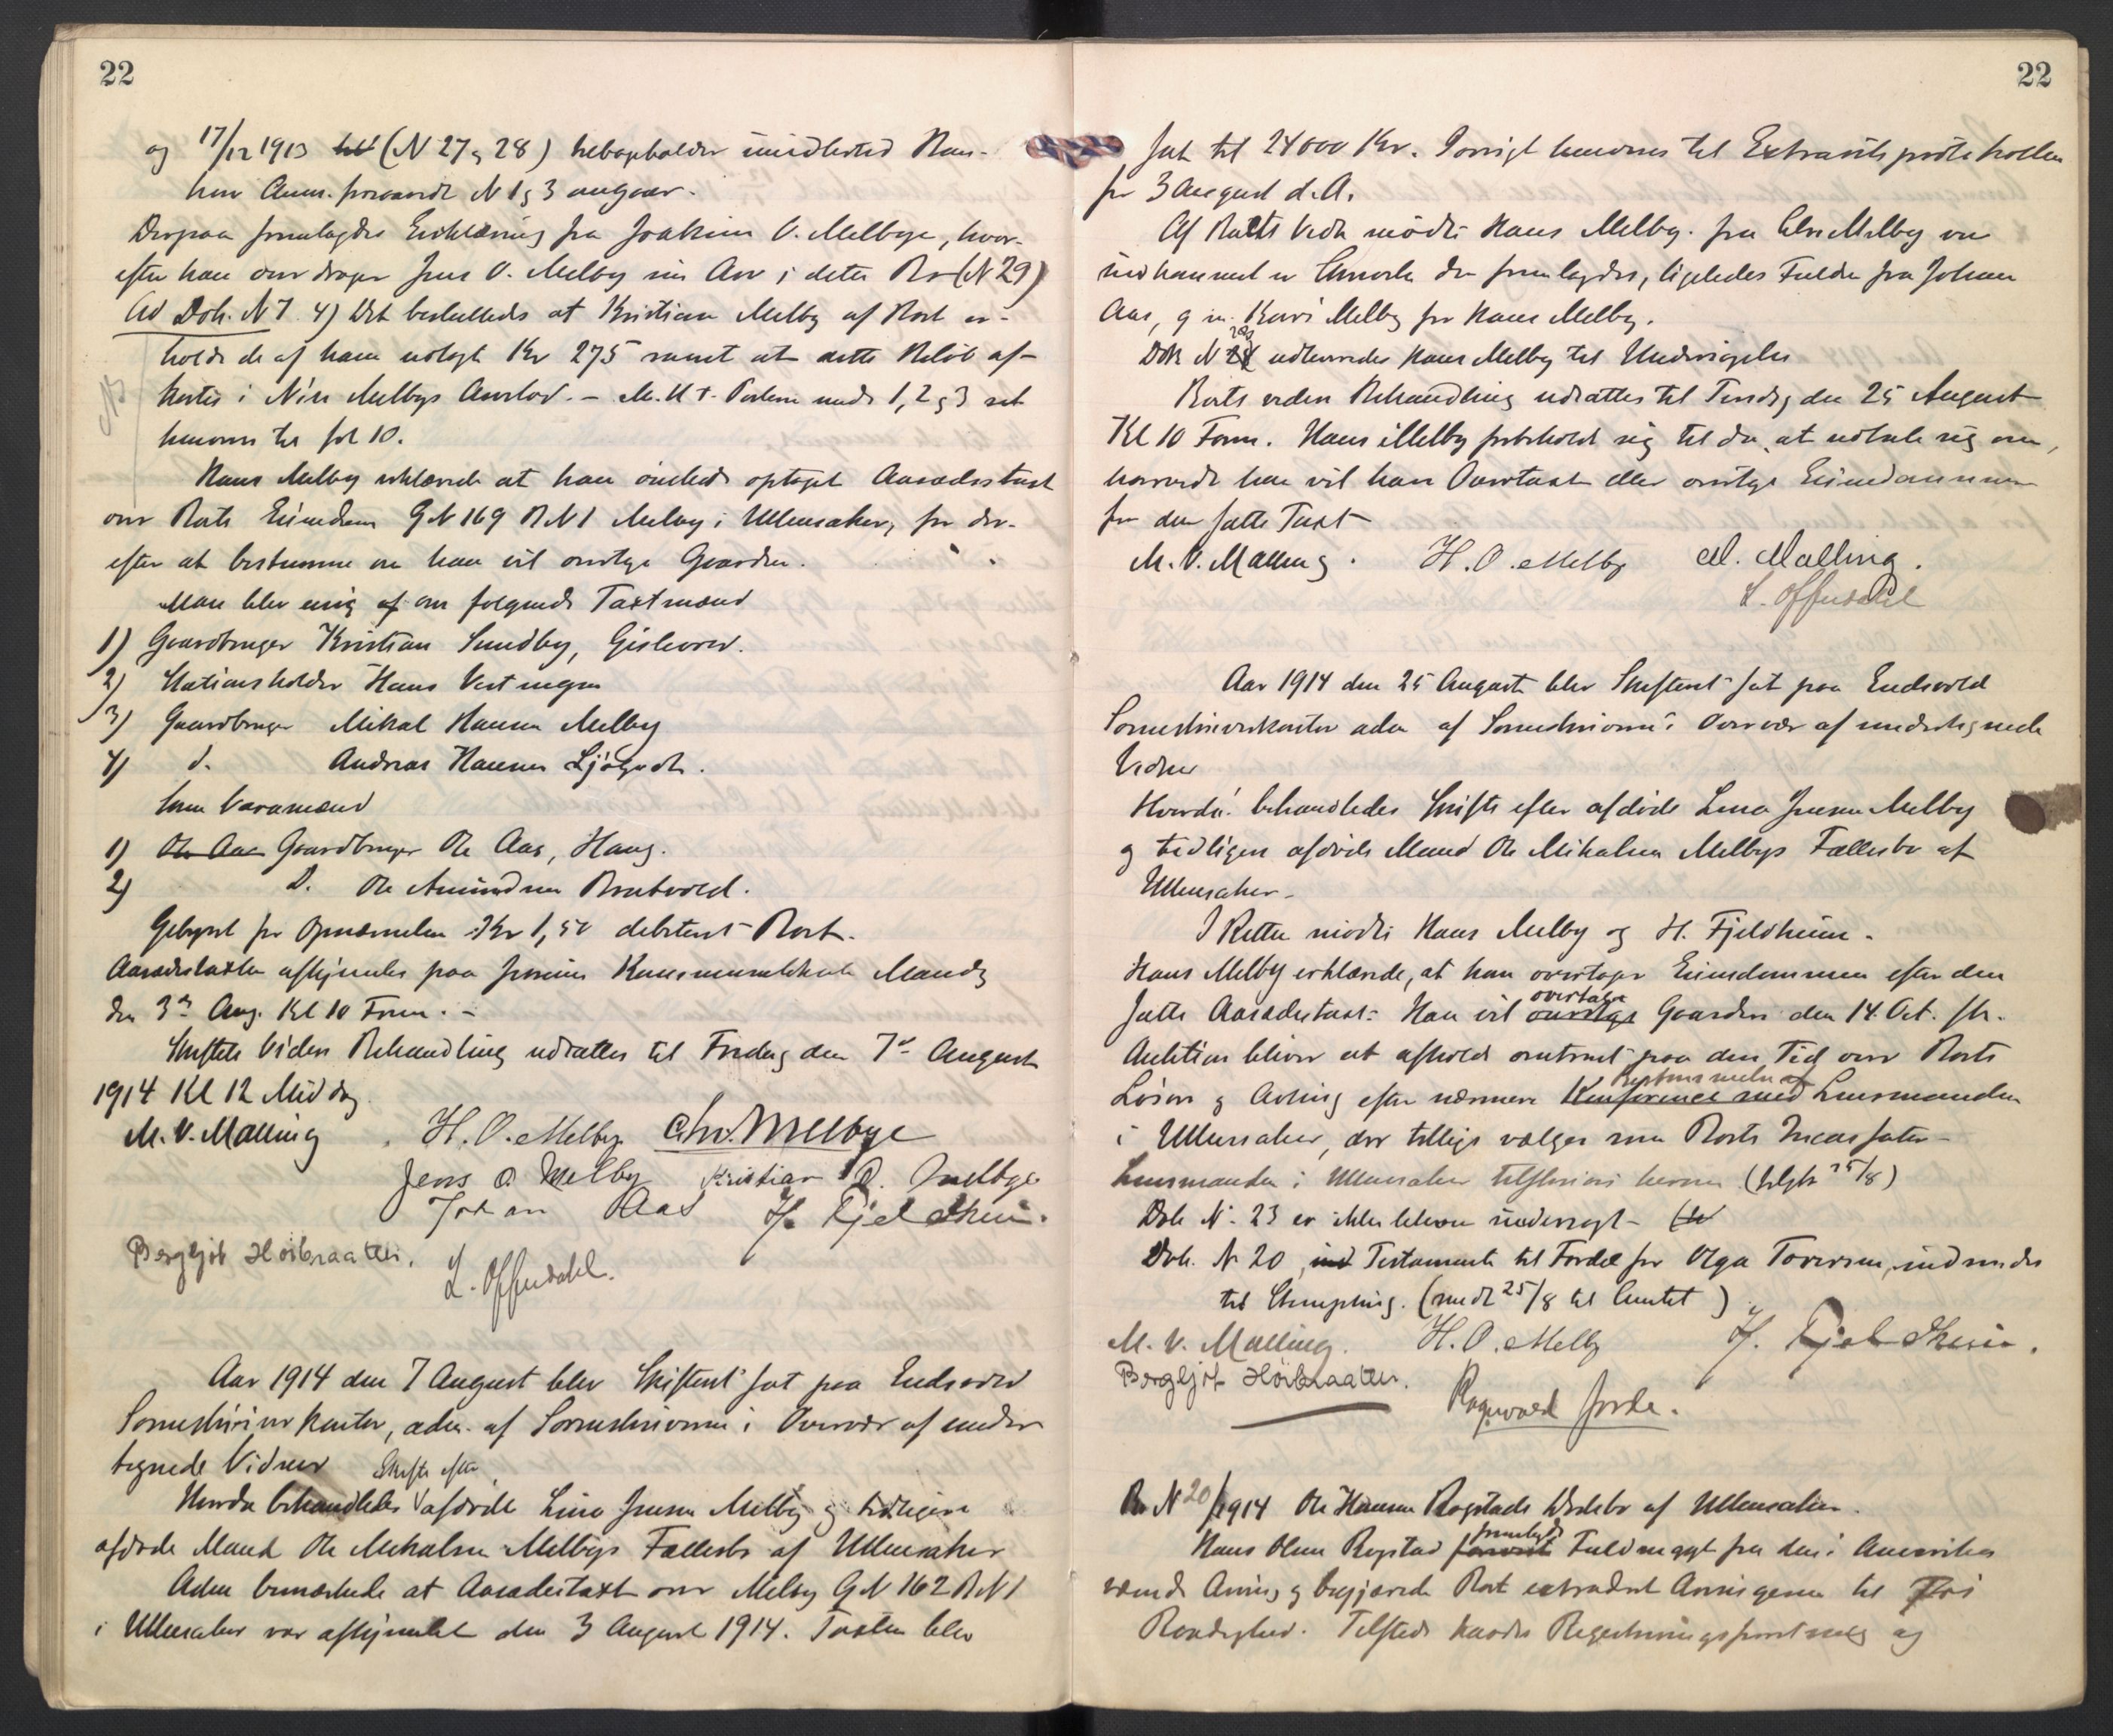 22
og 17/12 1913 (N 27 & 28) tilbageholder imidlertid Han-
hvor Anm. N 1 & 3 angaar.
Derpaa fremlagdes Erklæring fra Joakim O. Melbye, hvor-
efter han overdrager Jens O. Melby sin Arv i dette Bo (N 29)
Ad Dok. N 7. 4) Det besluttedes at Kristian Melby af Boet er-
holder de af ham udlagte Kr 275 samt at dette Beløb af-
kortes i Melbys Arvelod. - M. H. t. Posterne under 1, 2 & 3
henvises til fol 10.
Hans Melby erklærede at han ønskede optaget Aasædestaxt
over Boets Eiendom GN 169 BN 1 Melby i Ullensaker, for der-
efter at bestemme om han vil overtage Gaarden.
Man blev enig om følgende Taxtmænd
1) Gaardbruger Kristian Sundby, Gislevold.
2) Stationsholder Hans Vestengen
3) Gaardbruger Mikal Hansen Melby
4) d. Andreas Hansen
Som Varamænd
1) Ole Aas Gaardbruger Ole Aas, Haug.
2) D. Ole Amundsen Bratvold.
Gebyret for Opnævnelsen Kr 1,50 debiteret Boet.
Aasædestaxten afhjemles paa Mandag
den 3de Aug. Kl 10 Form. -
Skiftets videre Behandling udsattes til Fredag den 7de August
1914 Kl 12 Middag
M. V. Malling H. O. Melby Chr. Melbye
Jens O. Melby Kristian O. Melbye
Johan Aas H. Fjeldheim.
Bergljot Høibraaten.
L. Offerdahl.
Aar 1914 den 7 August blev Skifteret sat paa Eidsvold
Sorenskriverkontor, adm. af Sorenskriveren i Overvær af under-
tegnede Vidner
Skifte efter
Hvorda behandledes afdøde Lina Jensen Melby og tidligere
afdøde Mand Ole Mikalsen Melbys Fællesbo af Ullensaker
Adm bemærkede at Aasædestaxt over Melby GN 162 BN 1
i Ullensaker var afhjemlet den 3 August 1914. Taxten blev
22
sat til 24000 Kr. Iøvrigt henvises til Extraretsprotokollen
for 3 August d. A.
Af Boets Vedk. mødte Hans Melby. Fra Chr Melby var
indkommet en Skrivelse der fremlagdes, ligeledes Fuldm fra Johan
Aas, Kari Melby for Hans Melby.
Dok N udleveredes Hans Melby til Underskrivelse
Boets videre Behandling udsattes til Tirsdag den 25 August
Kl 10 Form. Hans Melby forbeholdt sig til da, at udtale sig om,
hvorvidt han vil have Overtaxt eller overtage Eiendommen
for den satte Taxt
M. V. Malling. H. O. Melby M. Malling.
L. Offerdahl
Aar 1914 den 25 August blev Skifteret sat paa Eidsvold
Sorenskriverkontor adm af Sorenskriveren i Overvær af undertegnede
Vidner
Hvorda behandledes Skifte efter afdøde Lina Jensen Melby
og tidligere afdøde Mand Ole Mikalsen Melbys Fællesbo af
Ullensaker -
I Retten mødte Hans Melby og H. Fjeldheim.
Hans Melby erklærede, at han overtager Eiendommen efter den
satte Aasædestaxt. Han vil overtage Gaarden den 14. Oct. førstk.
Auktion bliver at afholde omtrent paa den Tid over Boets
Bestemmelse af
Løsøre & Avling efter nærmere Konference med Lensmanden
i Ullensaker, der tillige vælges som Boets Incassator -
Lensmanden i Ullensaker tilskrives herom (tilskr 25/8)
Dok N. 23 er ikke bleven underskrevet -
Dok. N 20, Testamente til Fordel for Olga Toresen, indsendes
til Stempling. (sendt 25/8 til Amtet)
M. V. Malling. H. O. Melby H. Fjeldheim.
Bergljot Høibraaten.
Ragnvald Jorde.
Bo N 20/1914 Ole Hansen Rogstads Dødsbo af Ullensaker.
fremlagde
Hans Olsen Rogstad Fuldmagt fra den i Amerika
værende Arving og begjærede Boet extraderet Arvingerne til fri
Raadighed. Tilstede havdes Registreringsforretning og